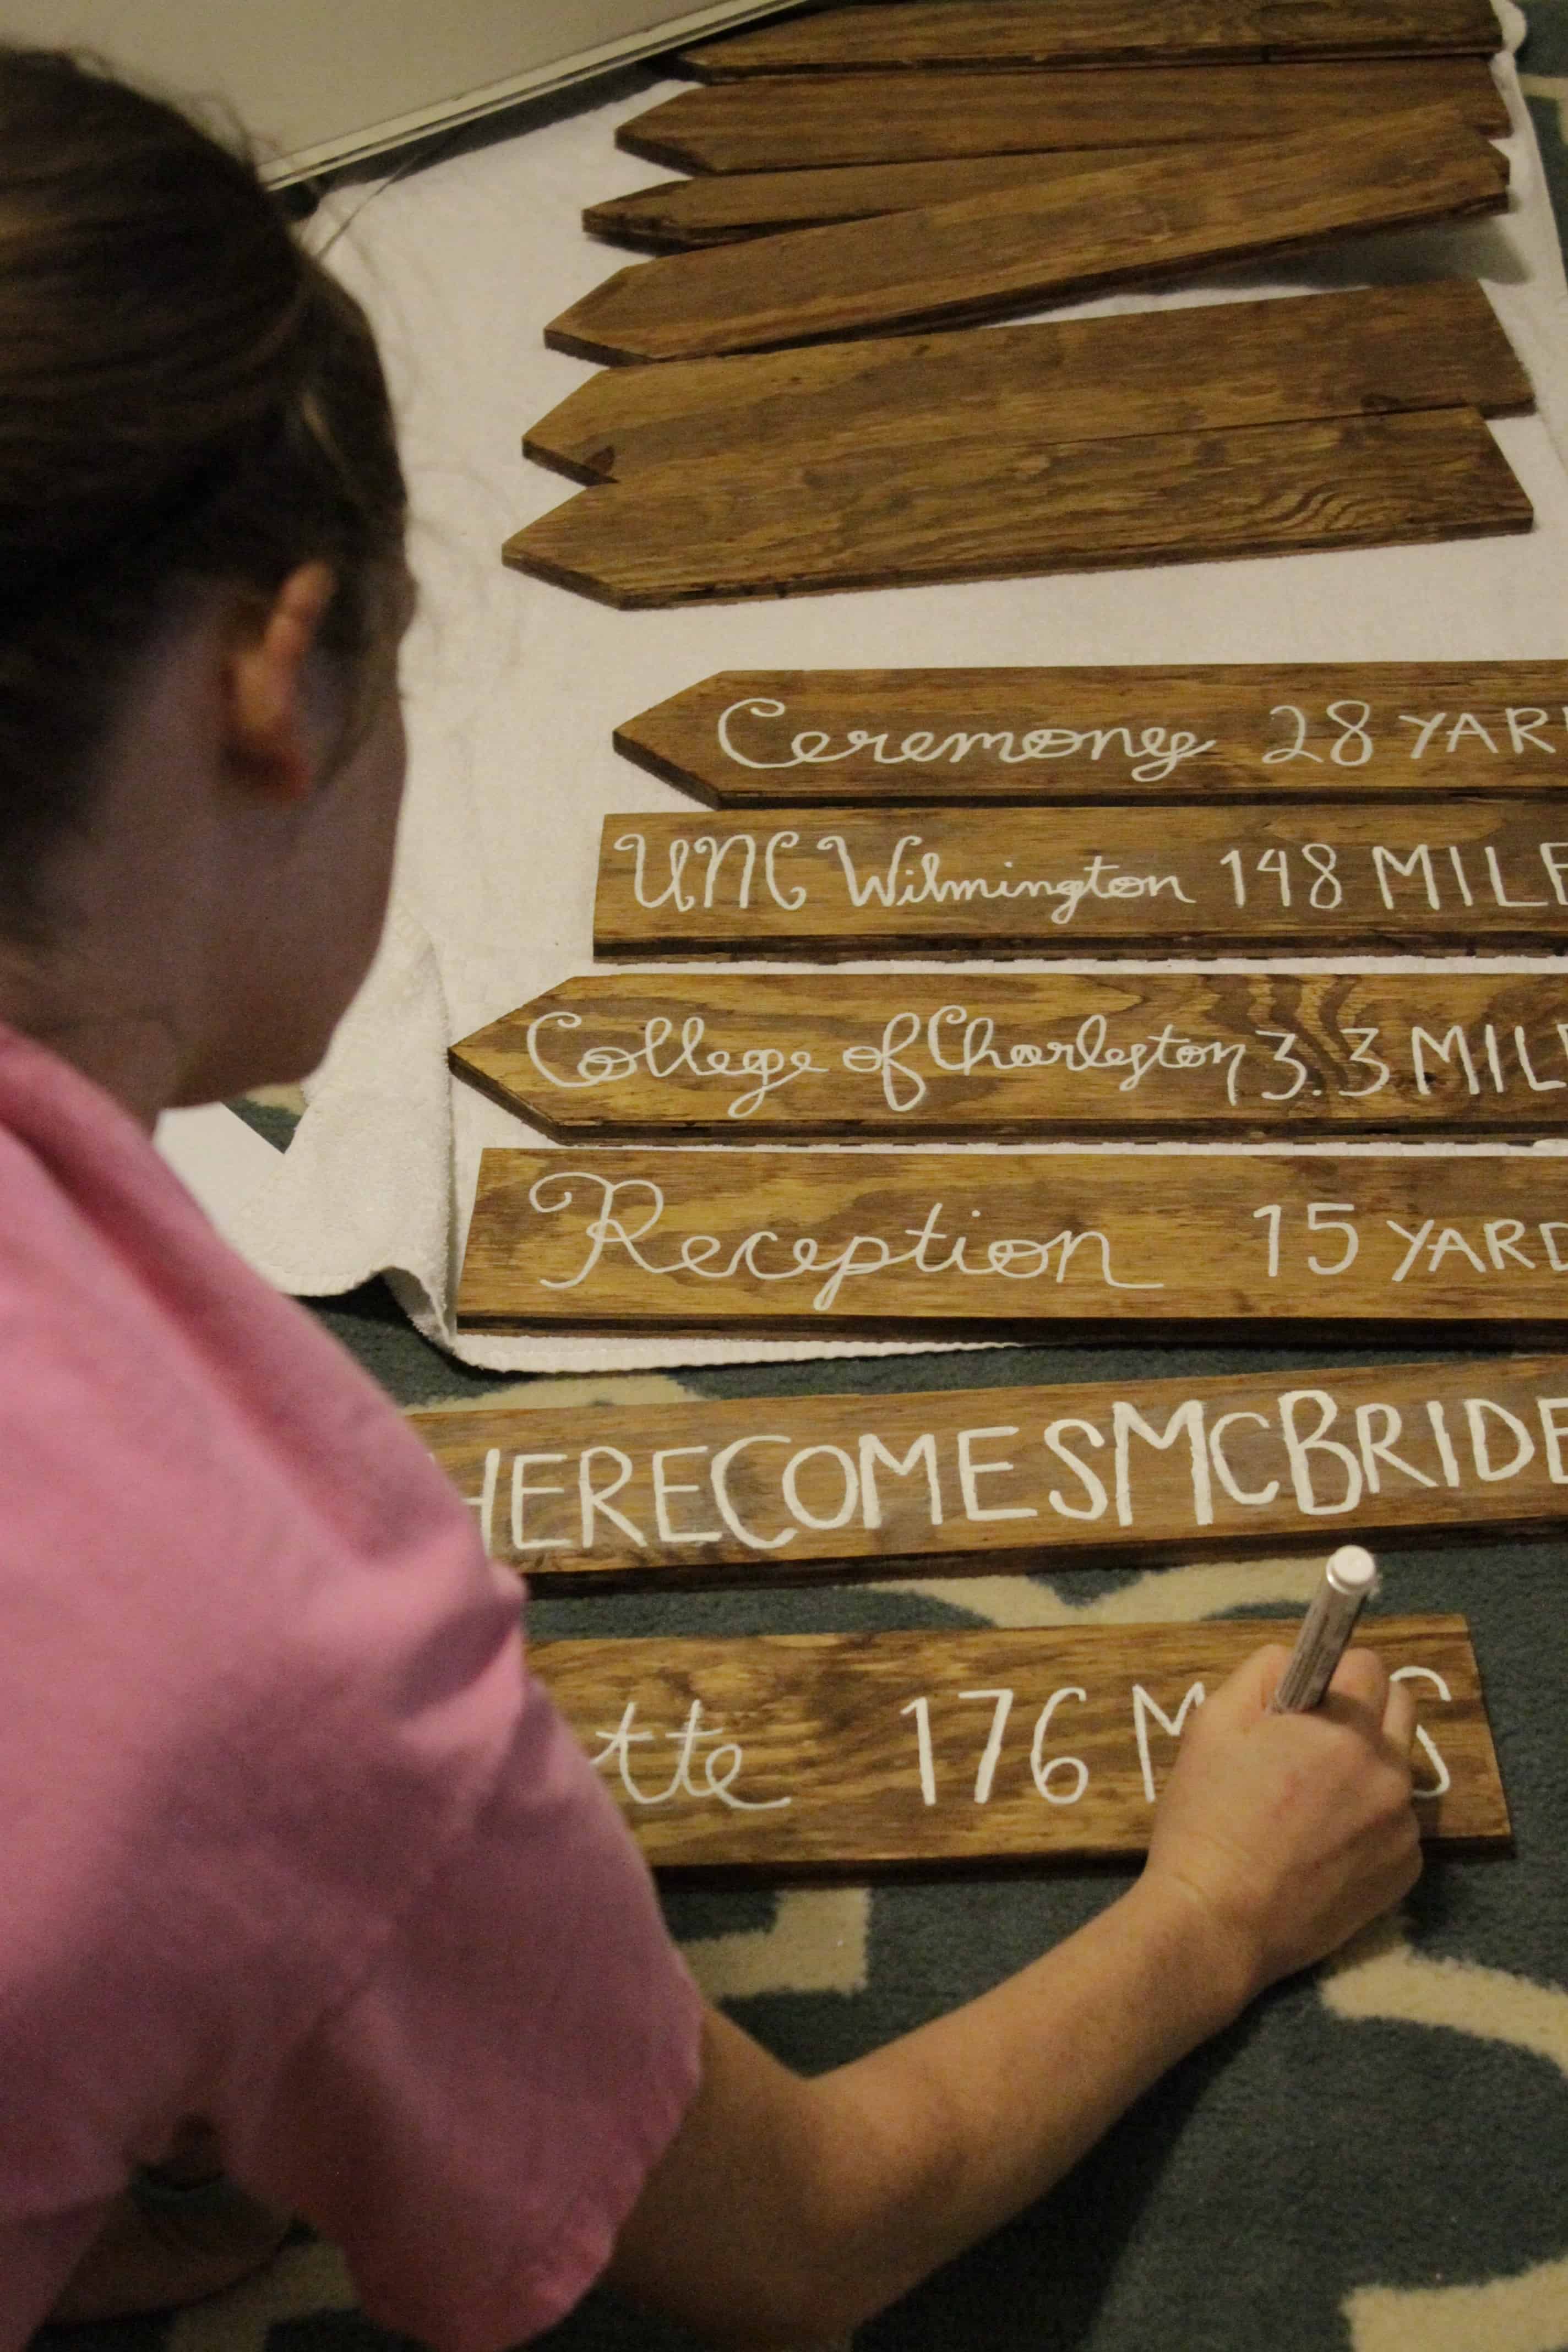 Ceremony 28 YARD
UNC Wilmington 148 MILE
College of Charleston 3.3 MIL
Reception 15 YARD
HERECOMESMCBRIDE
tte 176 M S